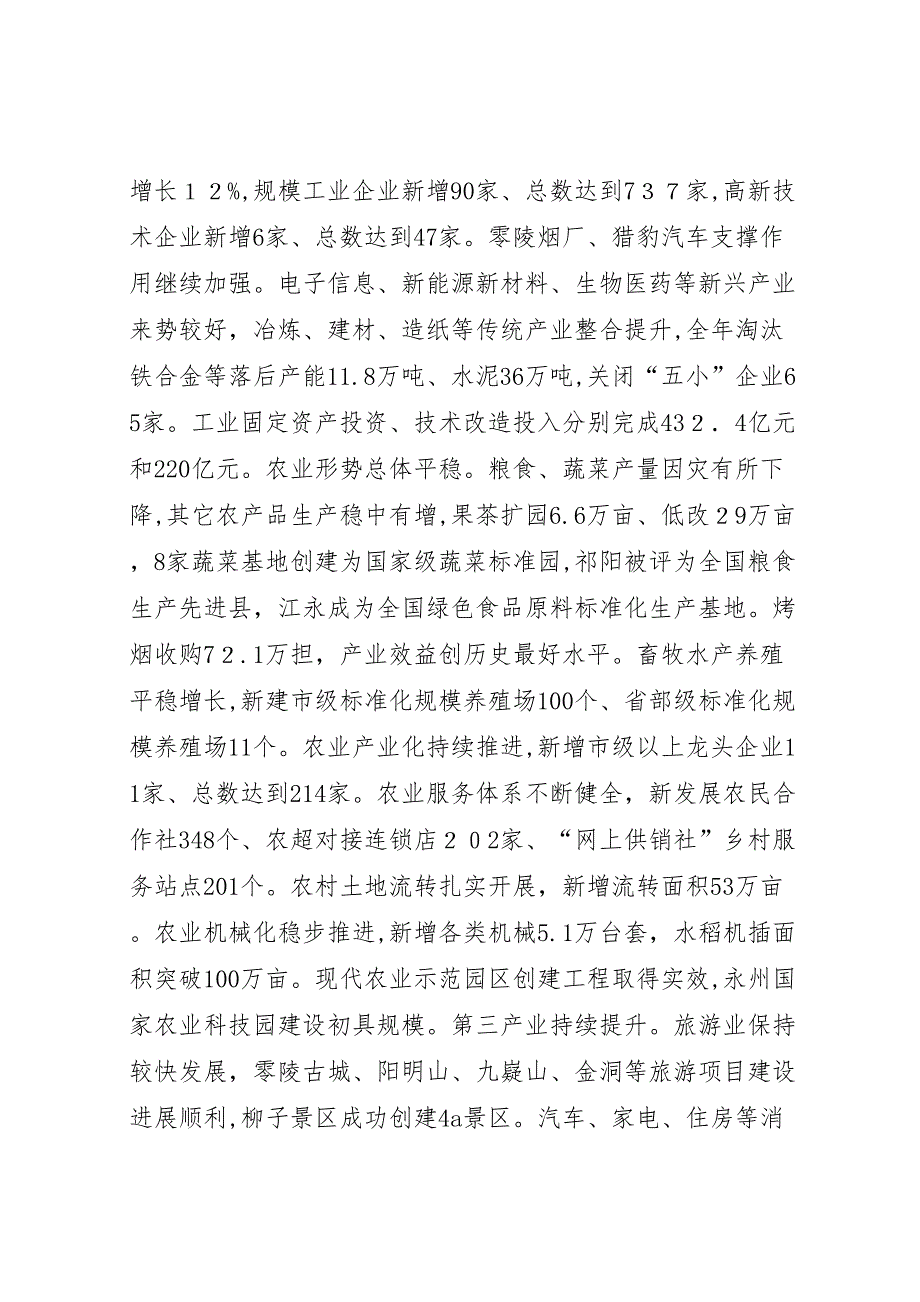 增长１２%,规模工业企业新增90家、总数达到7３７家,高新技
术企业新增6家、总数达到47家。零陵烟厂、猎豹汽车支撑作
用继续加强。电子信息、新能源新材料、生物医药等新兴产业
来势较好，冶炼、建材、造纸等传统产业整合提升,全年淘汰
铁合金等落后产能11.8万吨、水泥36万吨,关闭“五小”企业6
5家。工业固定资产投资、技术改造投入分别完成43２．4亿元
和220亿元。农业形势总体平稳。粮食、蔬菜产量因灾有所下
降,其它农产品生产稳中有增,果茶扩园6.6万亩、低改２9万亩
，8家蔬菜基地创建为国家级蔬菜标准园,祁阳被评为全国粮食
生产先进县，江永成为全国绿色食品原料标准化生产基地。烤
烟收购7２.1万担，产业效益创历史最好水平。畜牧水产养殖
平稳增长,新建市级标准化规模养殖场100个、省部级标准化规
模养殖场11个。农业产业化持续推进,新增市级以上龙头企业1
1家、总数达到214家。农业服务体系不断健全，新发展农民合
作社348个、农超对接连锁店２０2家、“网上供销社”乡村服
务站点201个。农村土地流转扎实开展，新增流转面积53万亩
。农业机械化稳步推进,新增各类机械5.1万台套，水稻机插面
积突破100万亩。现代农业示范园区创建工程取得实效,永州国
家农业科技园建设初具规模。第三产业持续提升。旅游业保持
较快发展，零陵古城、阳明山、九嶷山、金洞等旅游项目建设
进展顺利,柳子景区成功创建4a景区。汽车、家电、住房等消